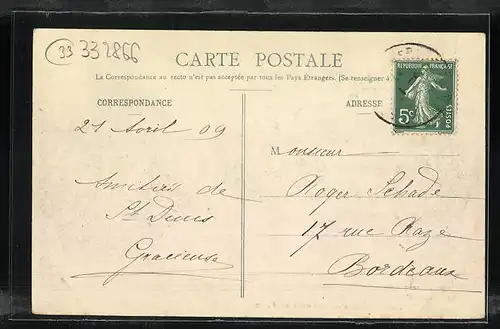 33 332866
CARTE POSTALE
La Correspondance au recto n'est pas acceptée par tous les Pays Étrangers. (Se renseigner à
CORRESPONDANCE
ADRESSE
REPUBLIQUE FRANÇAISE
5c
POSTES
21 Avril 09
Monsieur
Roger Schade
17 rue Razé
Bordeaux
Amitiés de
St Denis
Gracieuse